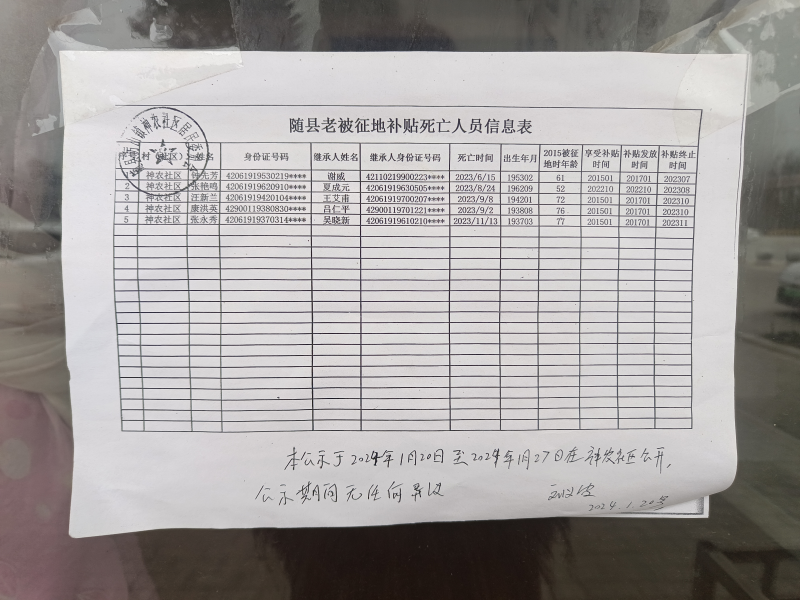 随县老被征地补贴死亡人员信息表
序号 村(社区) 姓名 身份证号码 继承人姓名 继承人身份证号码 死亡时间 出生年月 2015被征地时年龄 享受补贴时间 补贴发放时间 补贴终止时间
神农社区 先芳 42061919530219**** 谢威 42110219900223**** 2023/6/15 195302 61 201501 201701 202307
2 神农社区 张艳鸣 42061919620910**** 夏成元 42061919630505**** 2023/8/24 196209 52 202210 202210 202308
3 神农社区 汪新兰 42061919420104**** 王艾甫 42061919700207**** 2023/9/8 194201 72 201501 201701 202310
4 神农社区 康洪英 42900119380830**** 吕仁平 42900119701221**** 2023/9/2 193808 76 201501 201701 202310
5 神农社区 张永秀 42061919370314**** 吴晓新 42061919610210**** 2023/11/13 193703 77 201501 201701 202311
本公示于2024年1月20日至2024年1月27日在神农社区公开,
公示期间无任何异议
2024.1.20号